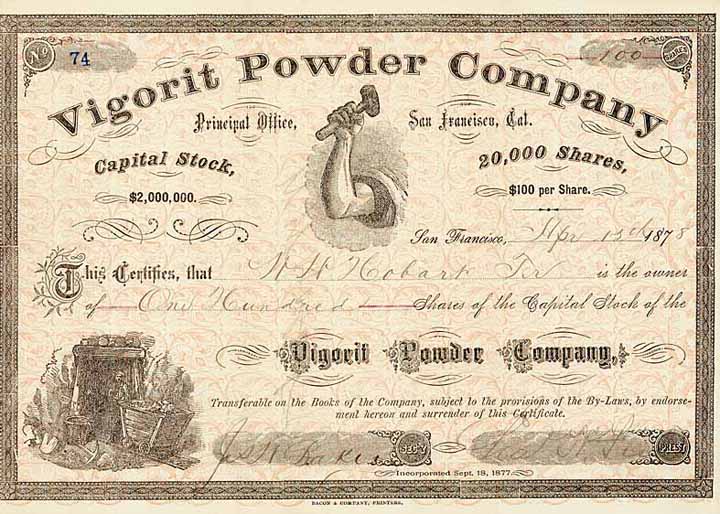 No 74 100 SHARES
Vigorit Powder Company
Principal Office, San Francisco, Cal.
Capital Stock, 20,000 Shares,
$2,000,000. $100 per Share.
San Francisco, Apr 13th 1878
This Certifies, that W H Hobart Tr is the owner
of One Hundred Shares of the Capital Stock of the
Vigorit Powder Company,
Transferable on the Books of the Company, subject to the provisions of the By-Laws, by endorse-
ment hereon and surrender of this Certificate.
SEC'Y PREST
Incorporated Sept. 18, 1877.
BACON & COMPANY, PRINTERS.